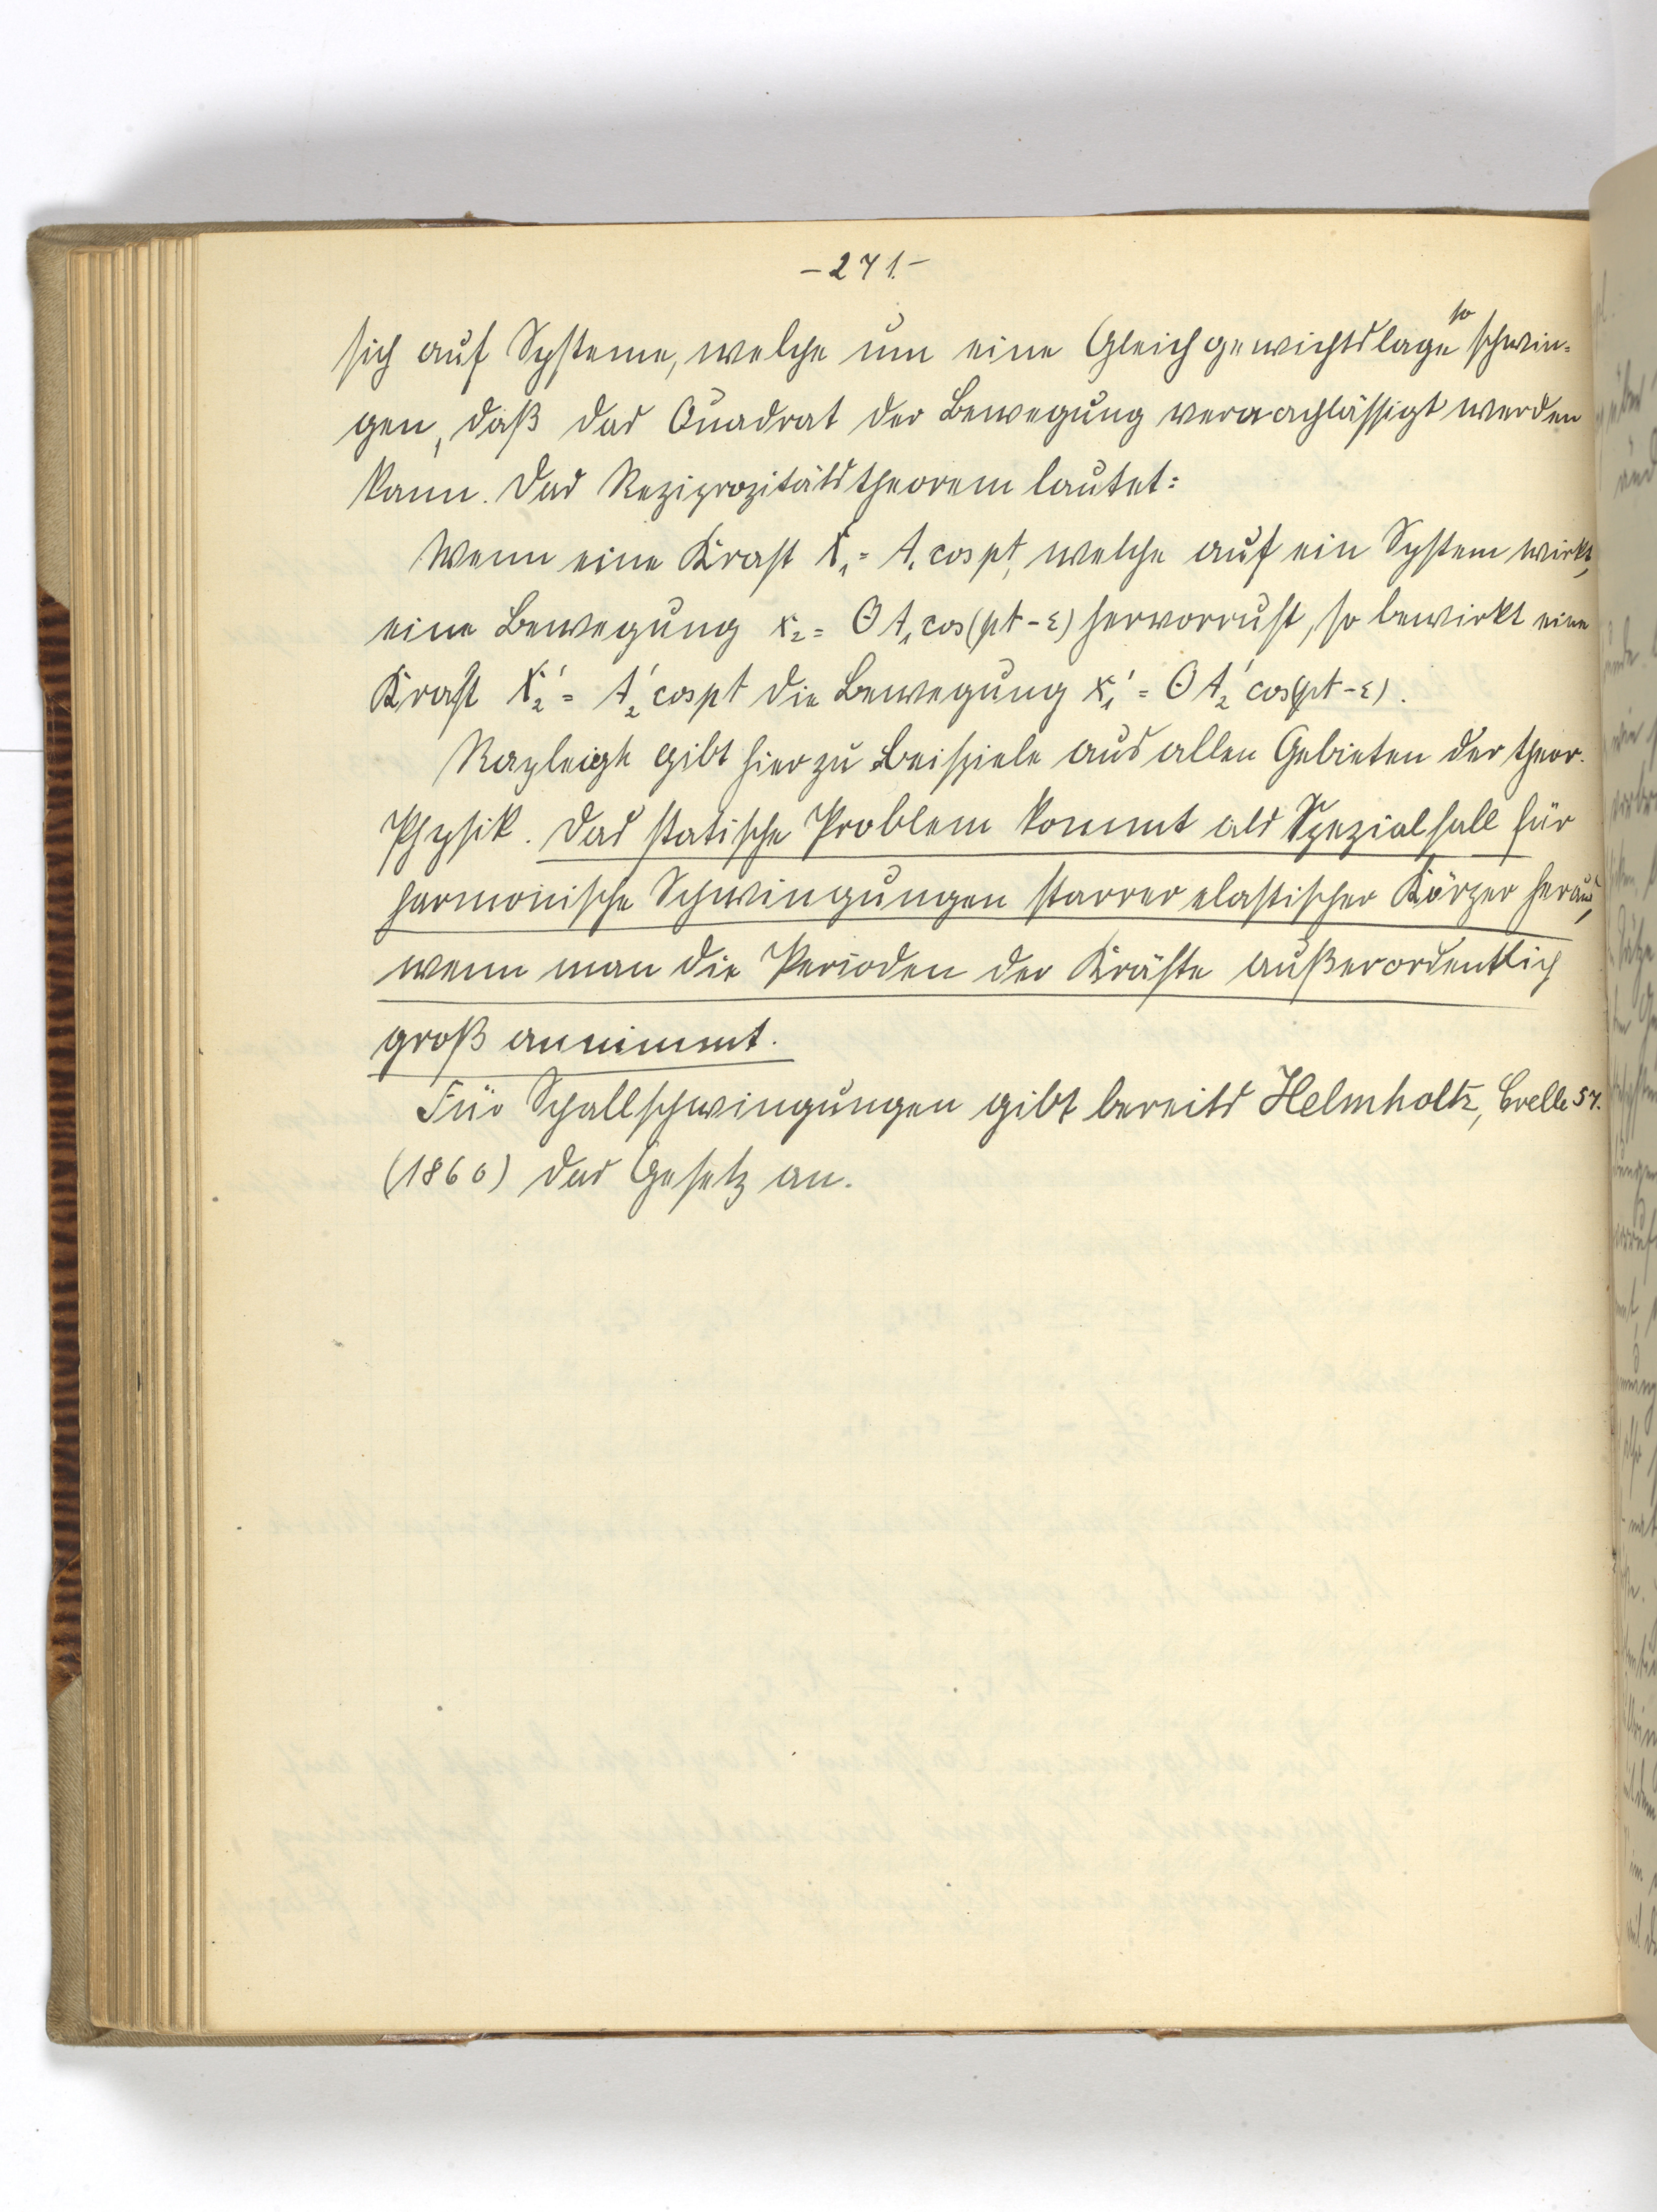 – 271. –
sich auf Systeme, welche um eine Gleichgewichtslage so schwin=
gen, daß das Quadrat der Bewegung vernachlässigt werden
kann. Das Reziprozitätstheorem lautet:
Wenn eine Kraft X₁ = A₁ cos pt, welche auf ein System wirkt,
eine Bewegung x₂ = Θ A₁ cos (pt - ε) hervorruft, so bewirkt eine
Kraft X₂' = A₂' cos pt die Bewegung x₁' = Θ A₂' cos (pt - ε).
Rayleigh gibt hierzu Beispiele aus allen Gebieten der theor.
Physik. Das statische Problem kommt als Spezialfall für
harmonische Schwingungen starrer elastischer Körper heraus,
wenn man die Perioden der Kräfte außerordentlich
groß annimmt.
Für Schallschwingungen gibt bereits Helmholtz, Crelle 57.
(1860) das Gesetz an.